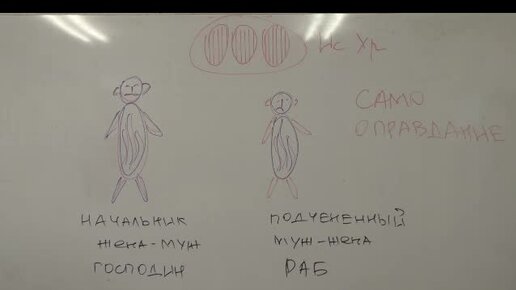 Ис Хр
САМО
ОПРАВДАНИЕ
НАЧАЛЬНИК
ЖЕНА-МУЖ
ГОСПОДИН
ПОДЧЕНЕННЫЙ
МУЖ-ЖЕНА
РАБ